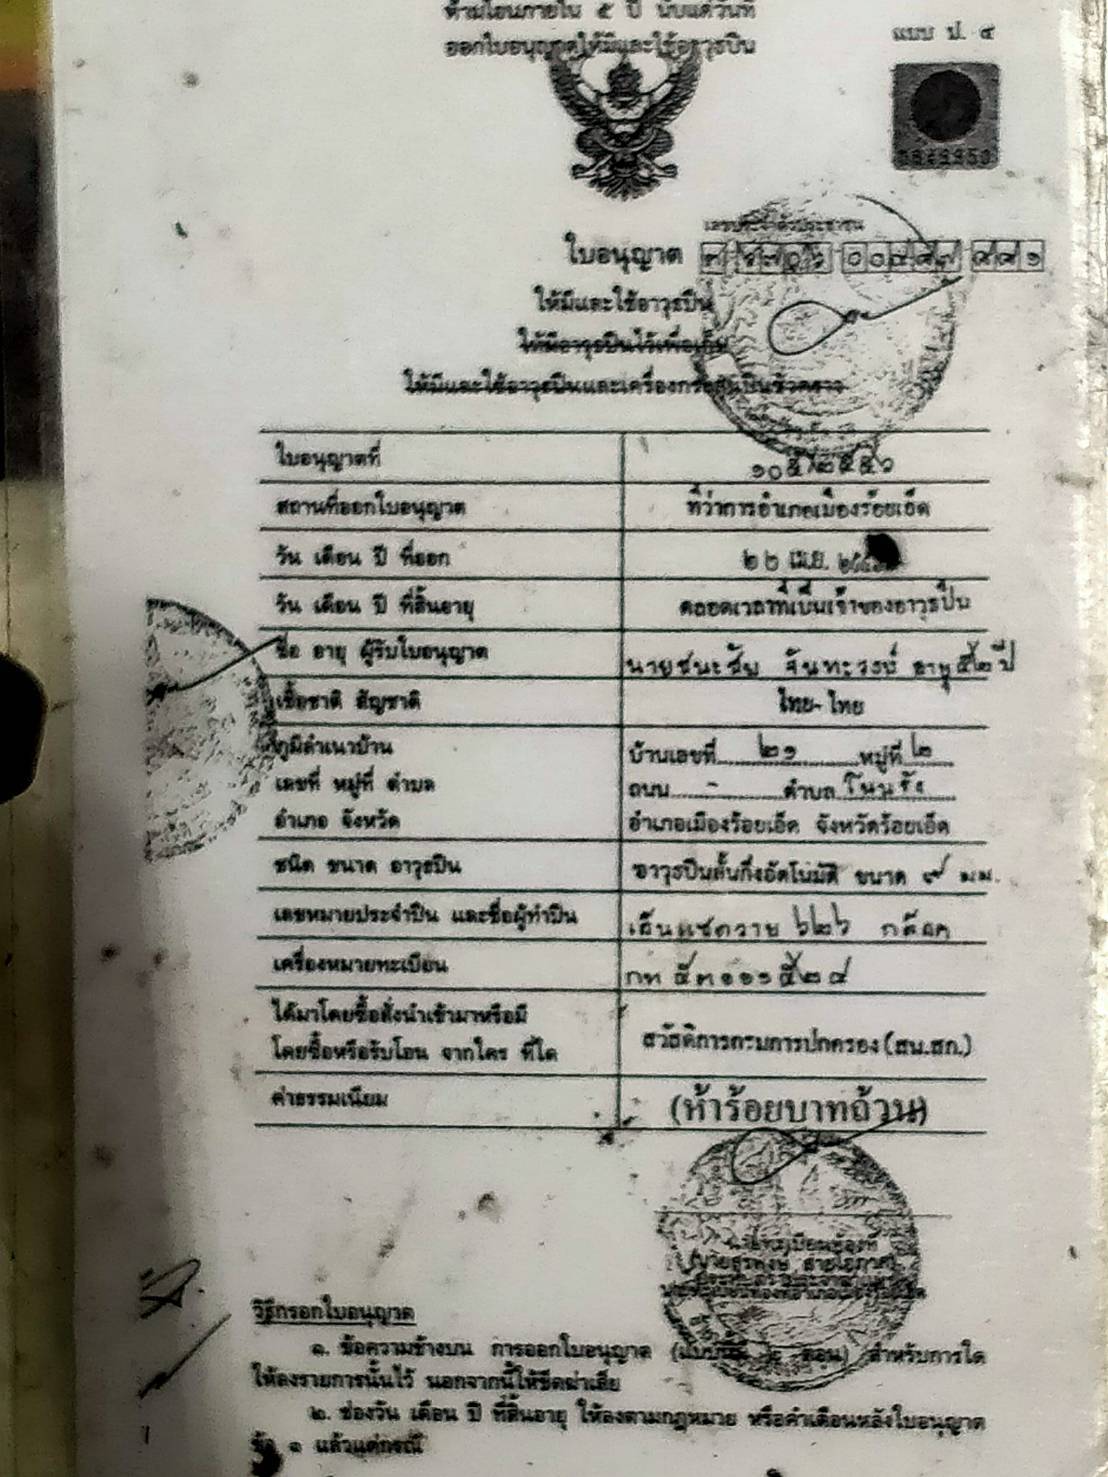 ห้ามโอนภายใน ๕ ปี นับแต่วันที่
ออกใบอนุญาตให้มีและใช้อาวุธปืน
แบบ ป. ๔
เลขประจำตัวประชาชน
ใบอนุญาต
ให้มีและใช้อาวุธปืน
ให้มีอาวุธปืนไว้เพื่อเก็บ
ให้มีและใช้อาวุธปืนและเครื่องกระสุนปืนชั่วคราว
ใบอนุญาตที่ ๑๐๕/๒๕๕๖
สถานที่ออกใบอนุญาต ที่ว่าการอำเภอเมืองร้อยเอ็ด
วัน เดือน ปี ที่ออก ๒๒ เม.ย.
วัน เดือน ปี ที่สิ้นอายุ ตลอดเวลาที่เป็นเจ้าของอาวุธปืน
ชื่อ อายุ ผู้รับใบอนุญาต นายชนะชัย จันทะวงษ์ อายุ ๕๒ ปี
เชื้อชาติ สัญชาติ ไทย-ไทย
ภูมิลำเนาบ้าน บ้านเลขที่ ๒๑ หมู่ที่ ๒
เลขที่ หมู่ที่ ตำบล ถนน - ตำบล โนนรัง
อำเภอ จังหวัด อำเภอเมืองร้อยเอ็ด จังหวัดร้อยเอ็ด
ชนิด ขนาด อาวุธปืน อาวุธปืนสั้นกึ่งอัตโนมัติ ขนาด ๙ มม.
เลขหมายประจำปืน และชื่อผู้ทำปืน เอ็นแซดวาย ๖๒๖ กล็อค
เครื่องหมายทะเบียน กท ๕๓๑๑๑๕๒๔
ได้มาโดยซื้อสั่งนำเข้ามาหรือมี
โดยซื้อหรือรับโอน จากใคร ที่ใด สวัสดิการกรมการปกครอง (สน.สก.)
ค่าธรรมเนียม (ห้าร้อยบาทถ้วน)
วิธีกรอกใบอนุญาต
๑. ข้อความข้างบน การออกใบอนุญาต สำหรับการใด
ให้คงรายการนั้นไว้ นอกจากนี้ให้ขีดฆ่าเสีย
๒. ช่องวัน เดือน ปี ที่สิ้นอายุ ให้ลงตามกฎหมาย หรือคำเตือนหลังใบอนุญาต
ข้อ ๑ แล้วแต่กรณี